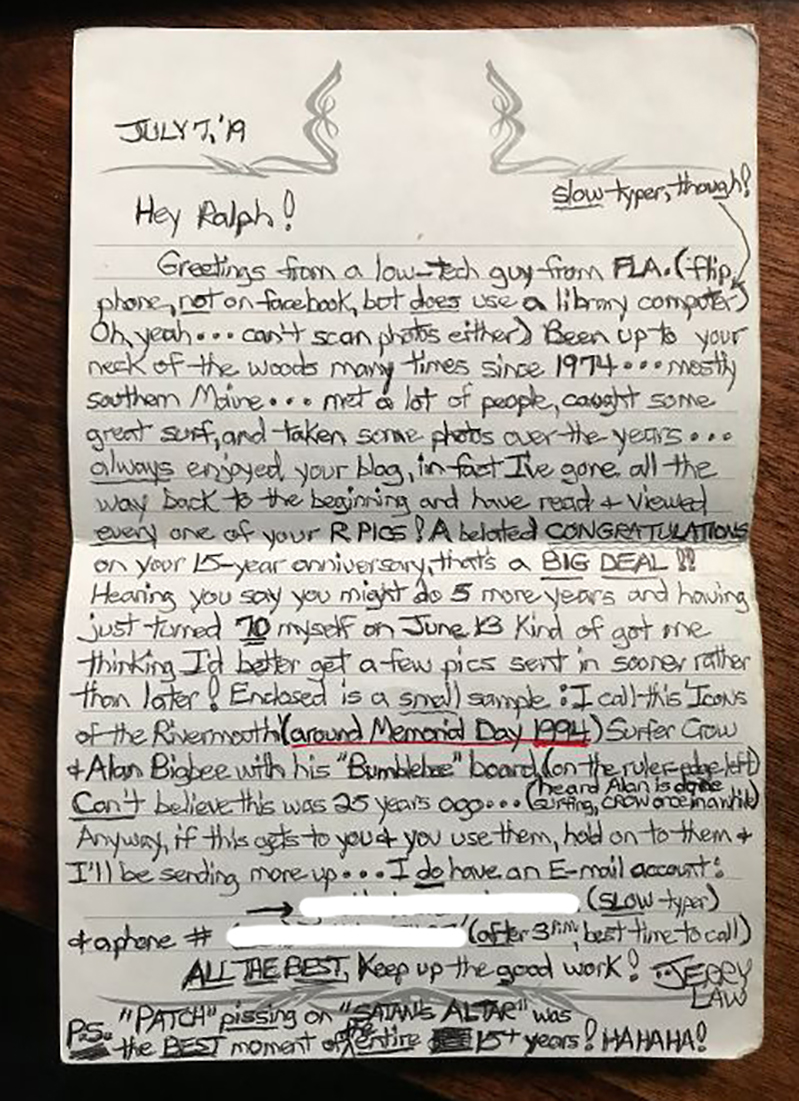 JULY 7, '19
slow typer, though!
Hey Ralph!
Greetings from a low-tech guy from FLA. (flip
phone, not on facebook, but does use a library computer)
Oh, yeah... can't scan photos either) Been up to your
neck of the woods many times since 1974... mostly
southern Maine... met a lot of people, caught some
great surf, and taken some photos over the years...
always enjoyed your blog, in fact I've gone all the
way back to the beginning and have read + viewed
every one of your R PICS! A belated CONGRATULATIONS
on your 15-year anniversary, that's a BIG DEAL!!
Hearing you say you might do 5 more years and having
just turned 70 myself on June 13 Kind of got me
thinking I'd better get a few pics sent in sooner rather
than later! Enclosed is a small sample: I call this 'Icons
of the Rivermouth (around Memorial Day 1994) Surfer Crow
+ Alan Bigbee with his "Bumblebee" board, (on the ruler-edge left)
Can't believe this was 25 years ago... (heard Alan is done
surfing, crow once in a while)
Anyway, if this gets to you + you use them, hold on to them +
I'll be sending more up... I do have an E-mail account:
→ (SLOW-typer)
+ a phone # (after 3PM, best time to call)
ALL THE BEST, Keep up the good work! JERRY
LAW
P.S. "PATCH" pissing on "SATAN'S ALTAR" was
the BEST moment of the entire 15+ years! HAHAHA!